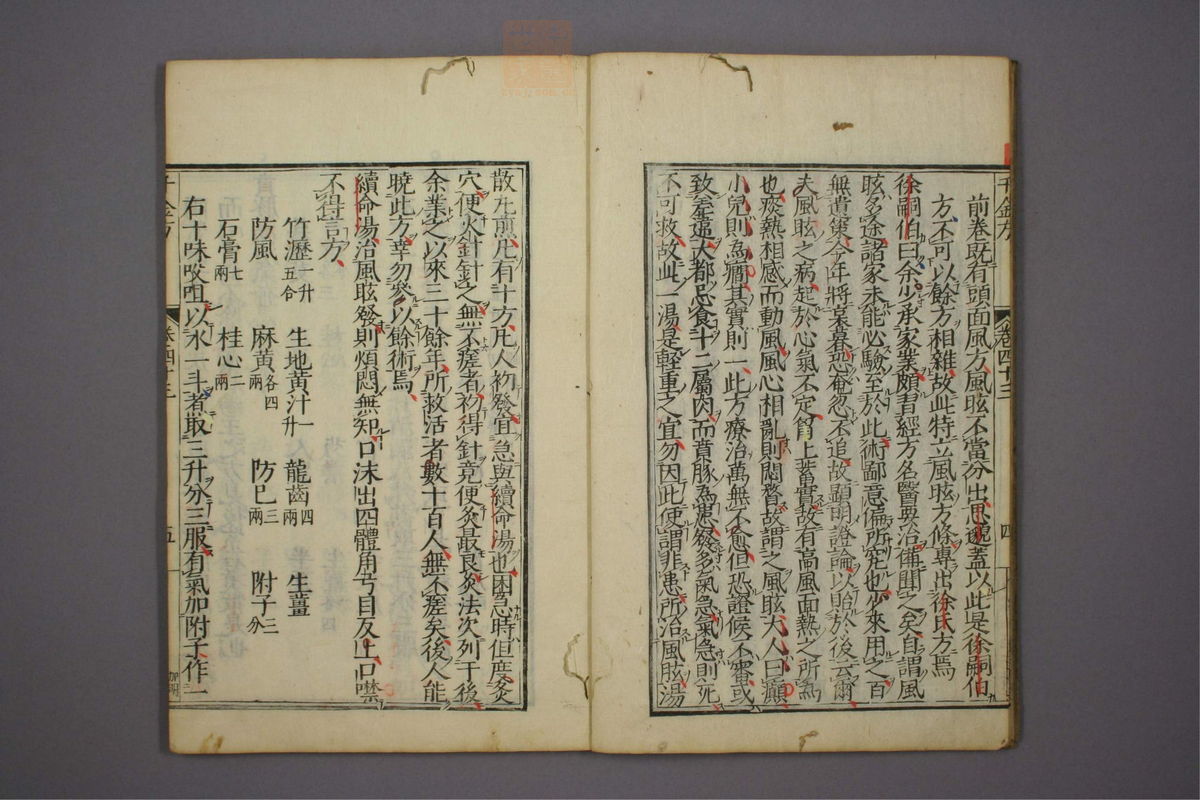 千金方 卷四十三 四
前卷既有頭面風方風眩不當分出思邈蓋以此是徐嗣伯
方不可以餘方相雜故此特立風眩方條專出徐氏方焉
徐嗣伯曰余少承家業頗習經方名醫要治備聞之矣自謂風
眩多途諸家未能必驗至於此術鄙意偏所究也少來用之百
無遺策今年將衰暮恐奄忽不追故顯明證論以貽於後云爾
夫風眩之病起於心氣不定胷上蓄實故有高風面熱之所爲
也痰熱相感而動風風心相亂則悶瞀故謂之風眩大人曰癲
小兒則爲癎其實則一此方療治萬無不愈但恐證候不審或
致差違大都忌食十二屬肉而賁豚爲患發多氣急氣急則死
不可救故此一湯是輕重之宜勿因此便謂非患所治風眩湯
散丸煎凡有十方凡人初發宜急與續命湯也困急時但度灸
穴便火針針之無不瘥者初得針竟便灸最良灸法次列于後
余業之以來三十餘年所救活者數十百人無不瘥矣後人能
曉此方幸勿參以餘術焉
續命湯治風眩發則煩悶無知口沫出四體角弓目反上口噤
不得言方
竹瀝一升五合 生地黃汁一升 龍齒四兩 生薑
防風 麻黃各四兩 防巳三兩 附子三分
石膏七兩 桂心二兩
右十味㕮咀以水一斗煮取三升分三服有氣加附子作一
千金方 卷四十三 五